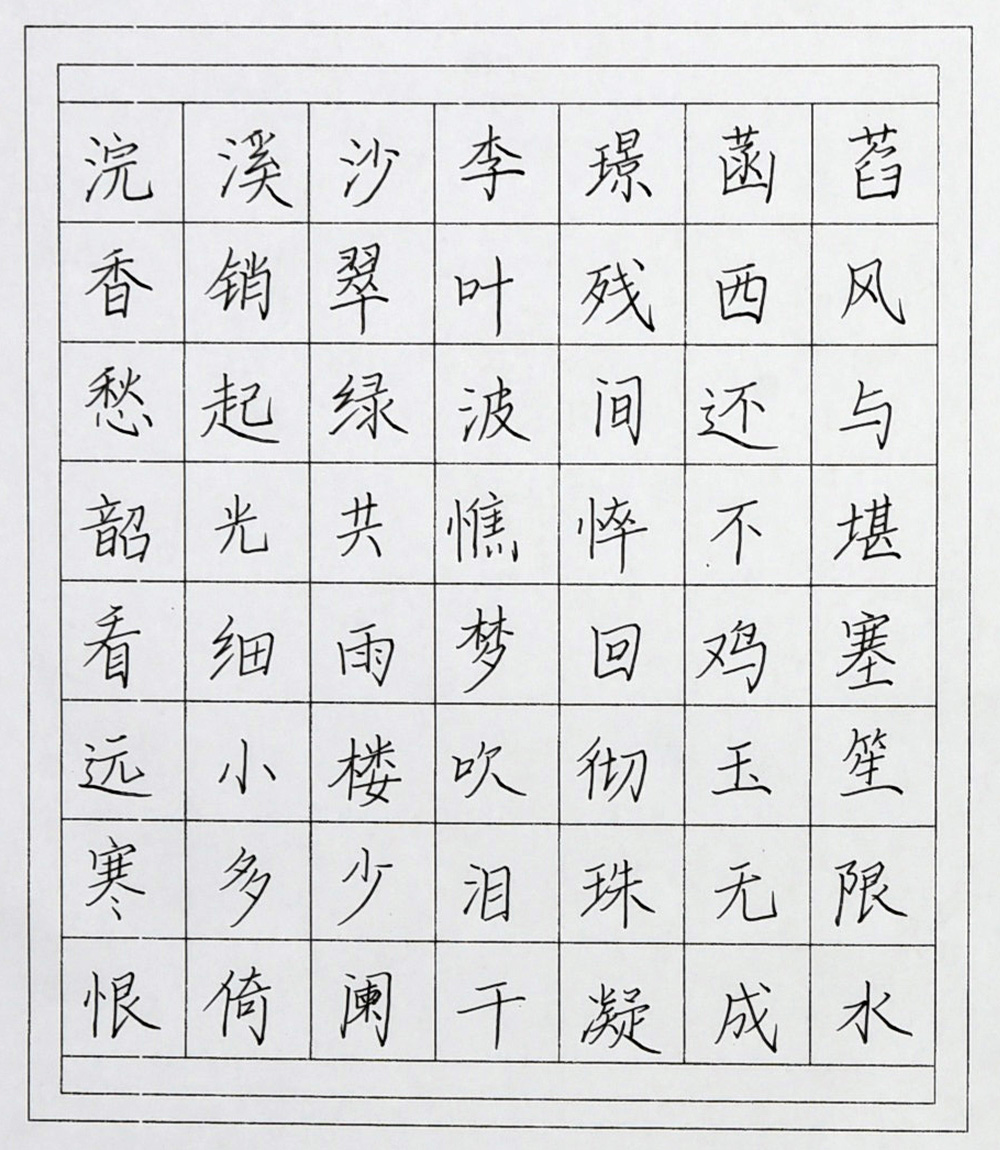 浣溪沙李璟菡萏
香销翠叶残西风
愁起绿波间还与
韶光共憔悴不堪
看细雨梦回鸡塞
远小楼吹彻玉笙
寒多少泪珠无限
恨倚阑干凝成水